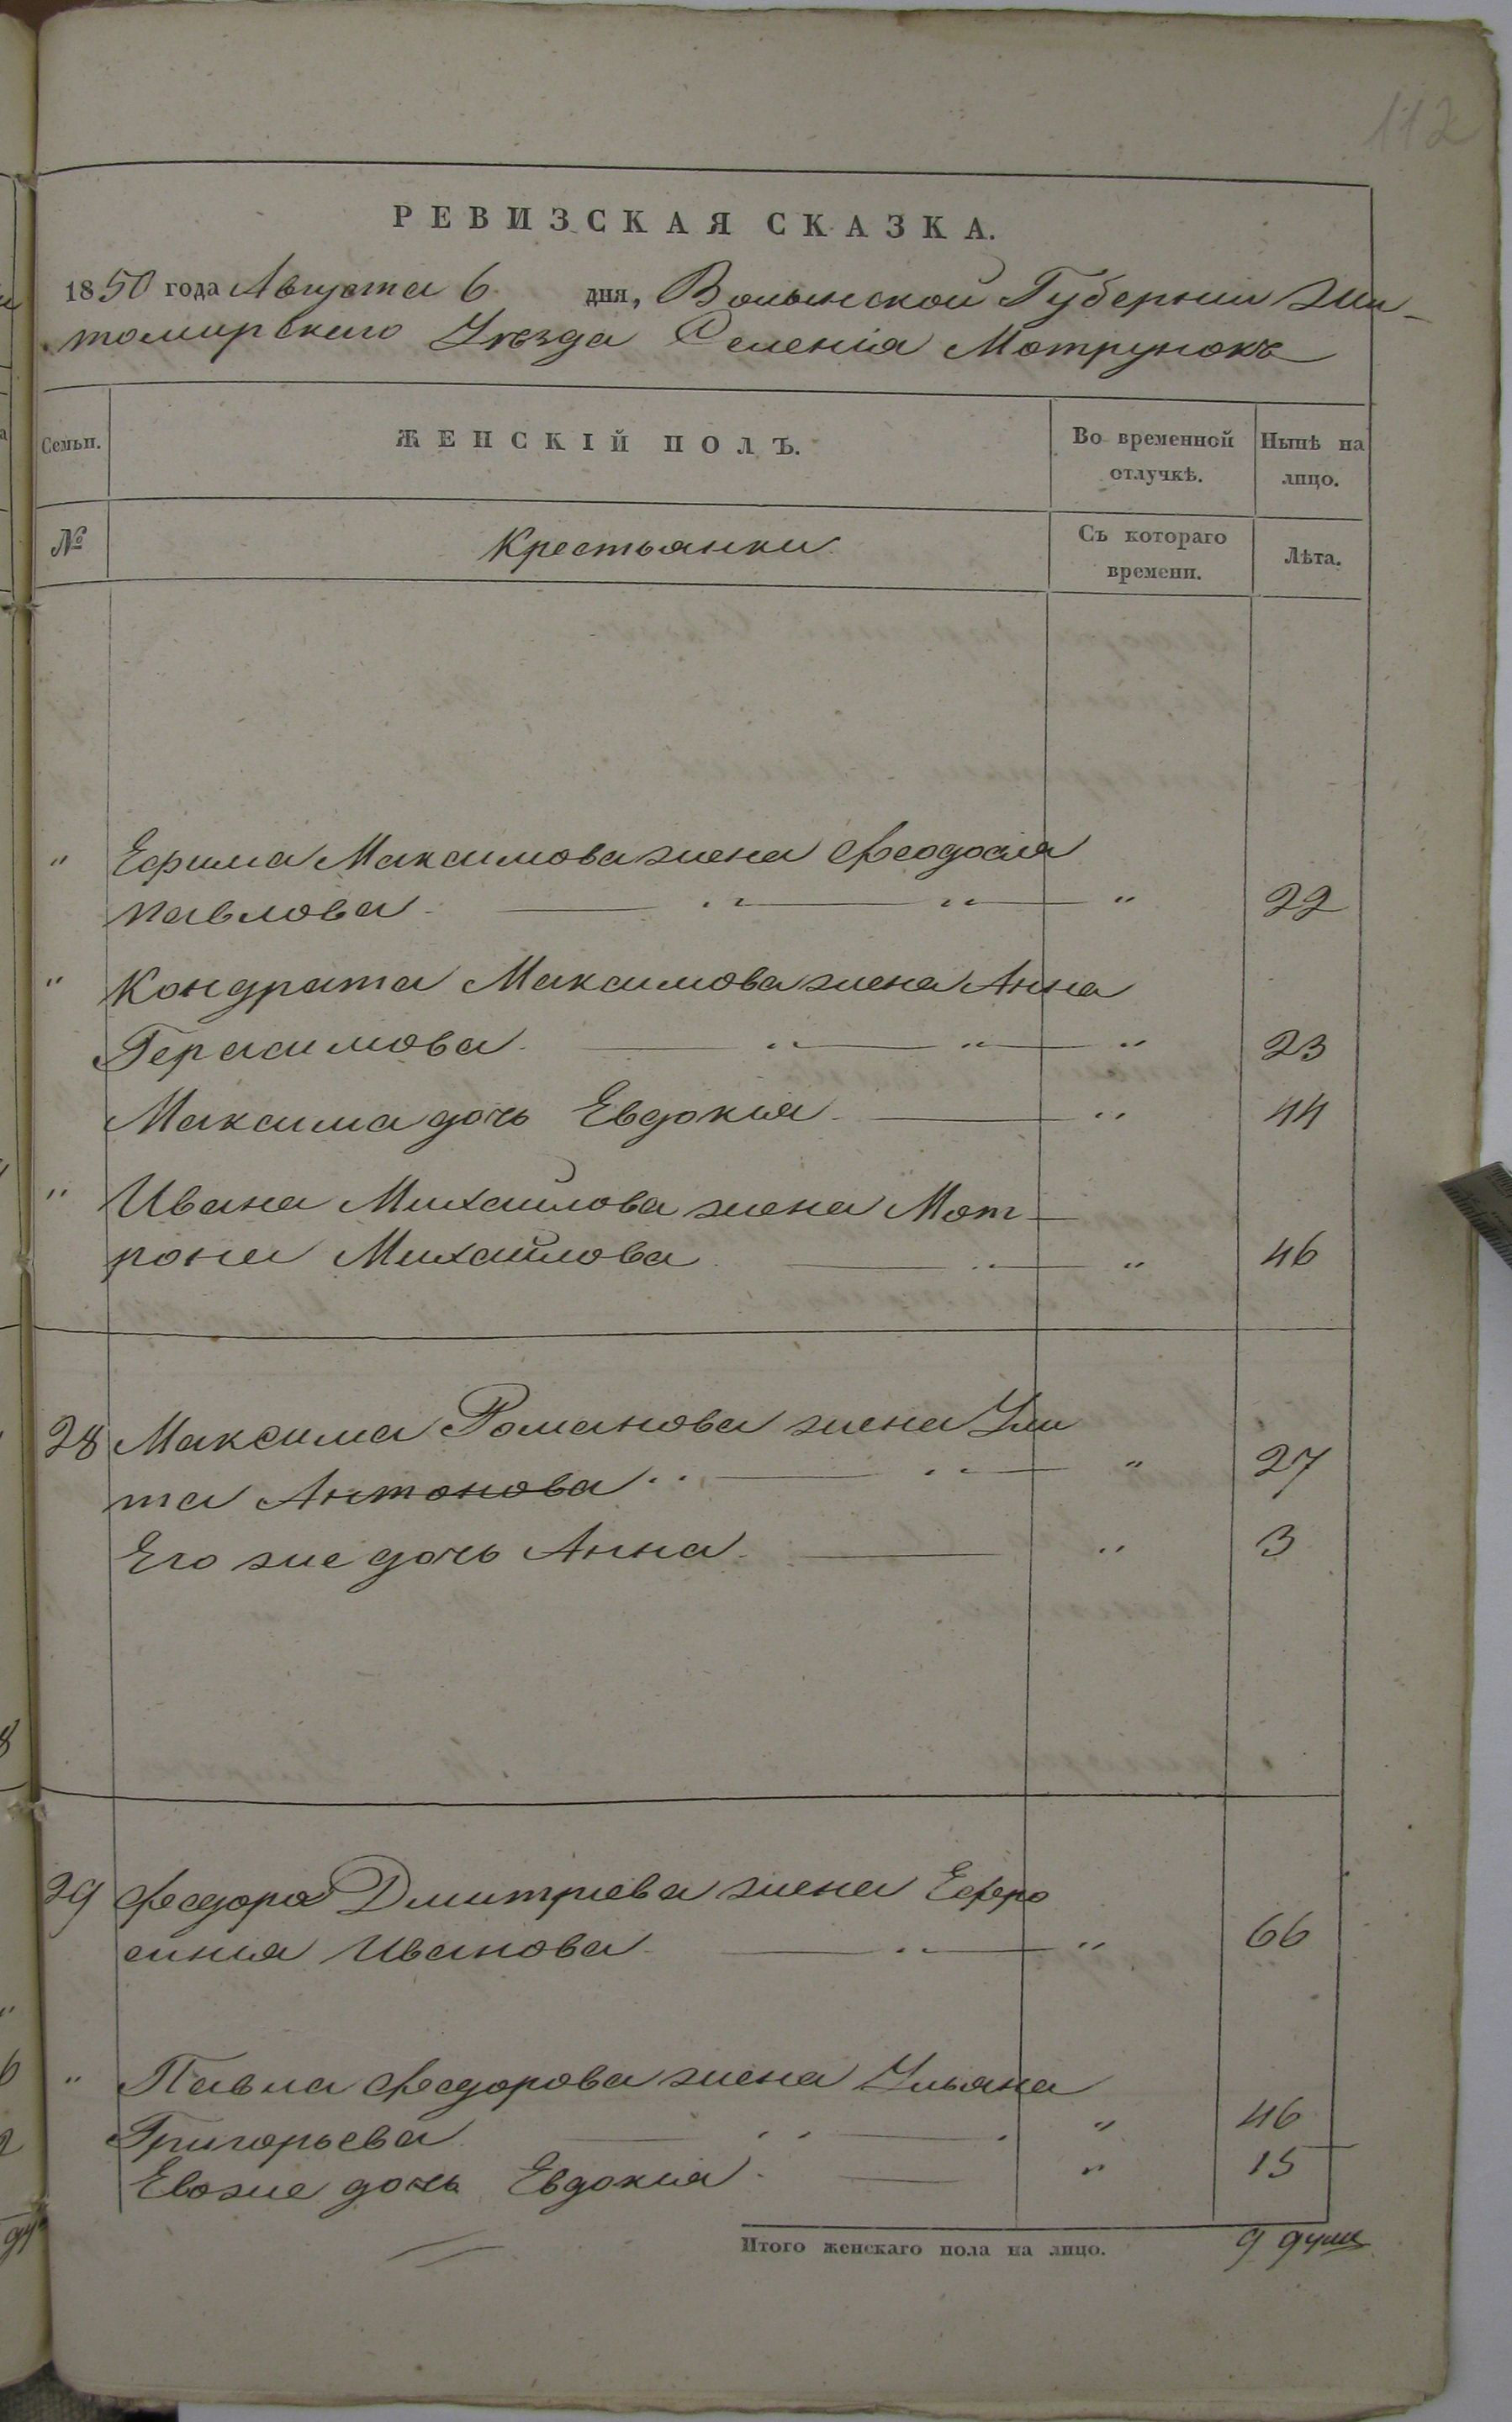 112
РЕВИЗСКАЯ СКАЗКА.
1850 года Августа 6 дня, Волынской Губернии Жи-
томирскаго Уезда Селенія Мотрунокъ
Семьи. ЖЕНСКІЙ ПОЛЪ. Во временной отлучкѣ. Нынѣ на лицо.
№ Крестьянки Съ котораго времени. Лѣта.
" Ефима Максимова жена Феодосия
Павлова " " " 22
" Кондрата Максимова жена Анна
Герасимова " " " 23
Максима дочь Евдокия " 44
" Ивана Михайлова жена Мот-
рона Михайлова " " 46
28 Максима Романова жена Ули
та Антонова " " " 27
Его же дочь Анна " 3
29 Феодора Дмитриева жена Ефро
синия Иванова " " 66
" Павла Феодорова жена Ульяна
Григорьева " " 46
Евоже дочь Евдокия " 15
Итого женскаго пола на лицо. 9 душ